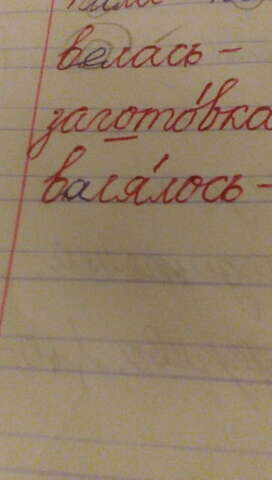 велась -
заготовка
валялось -